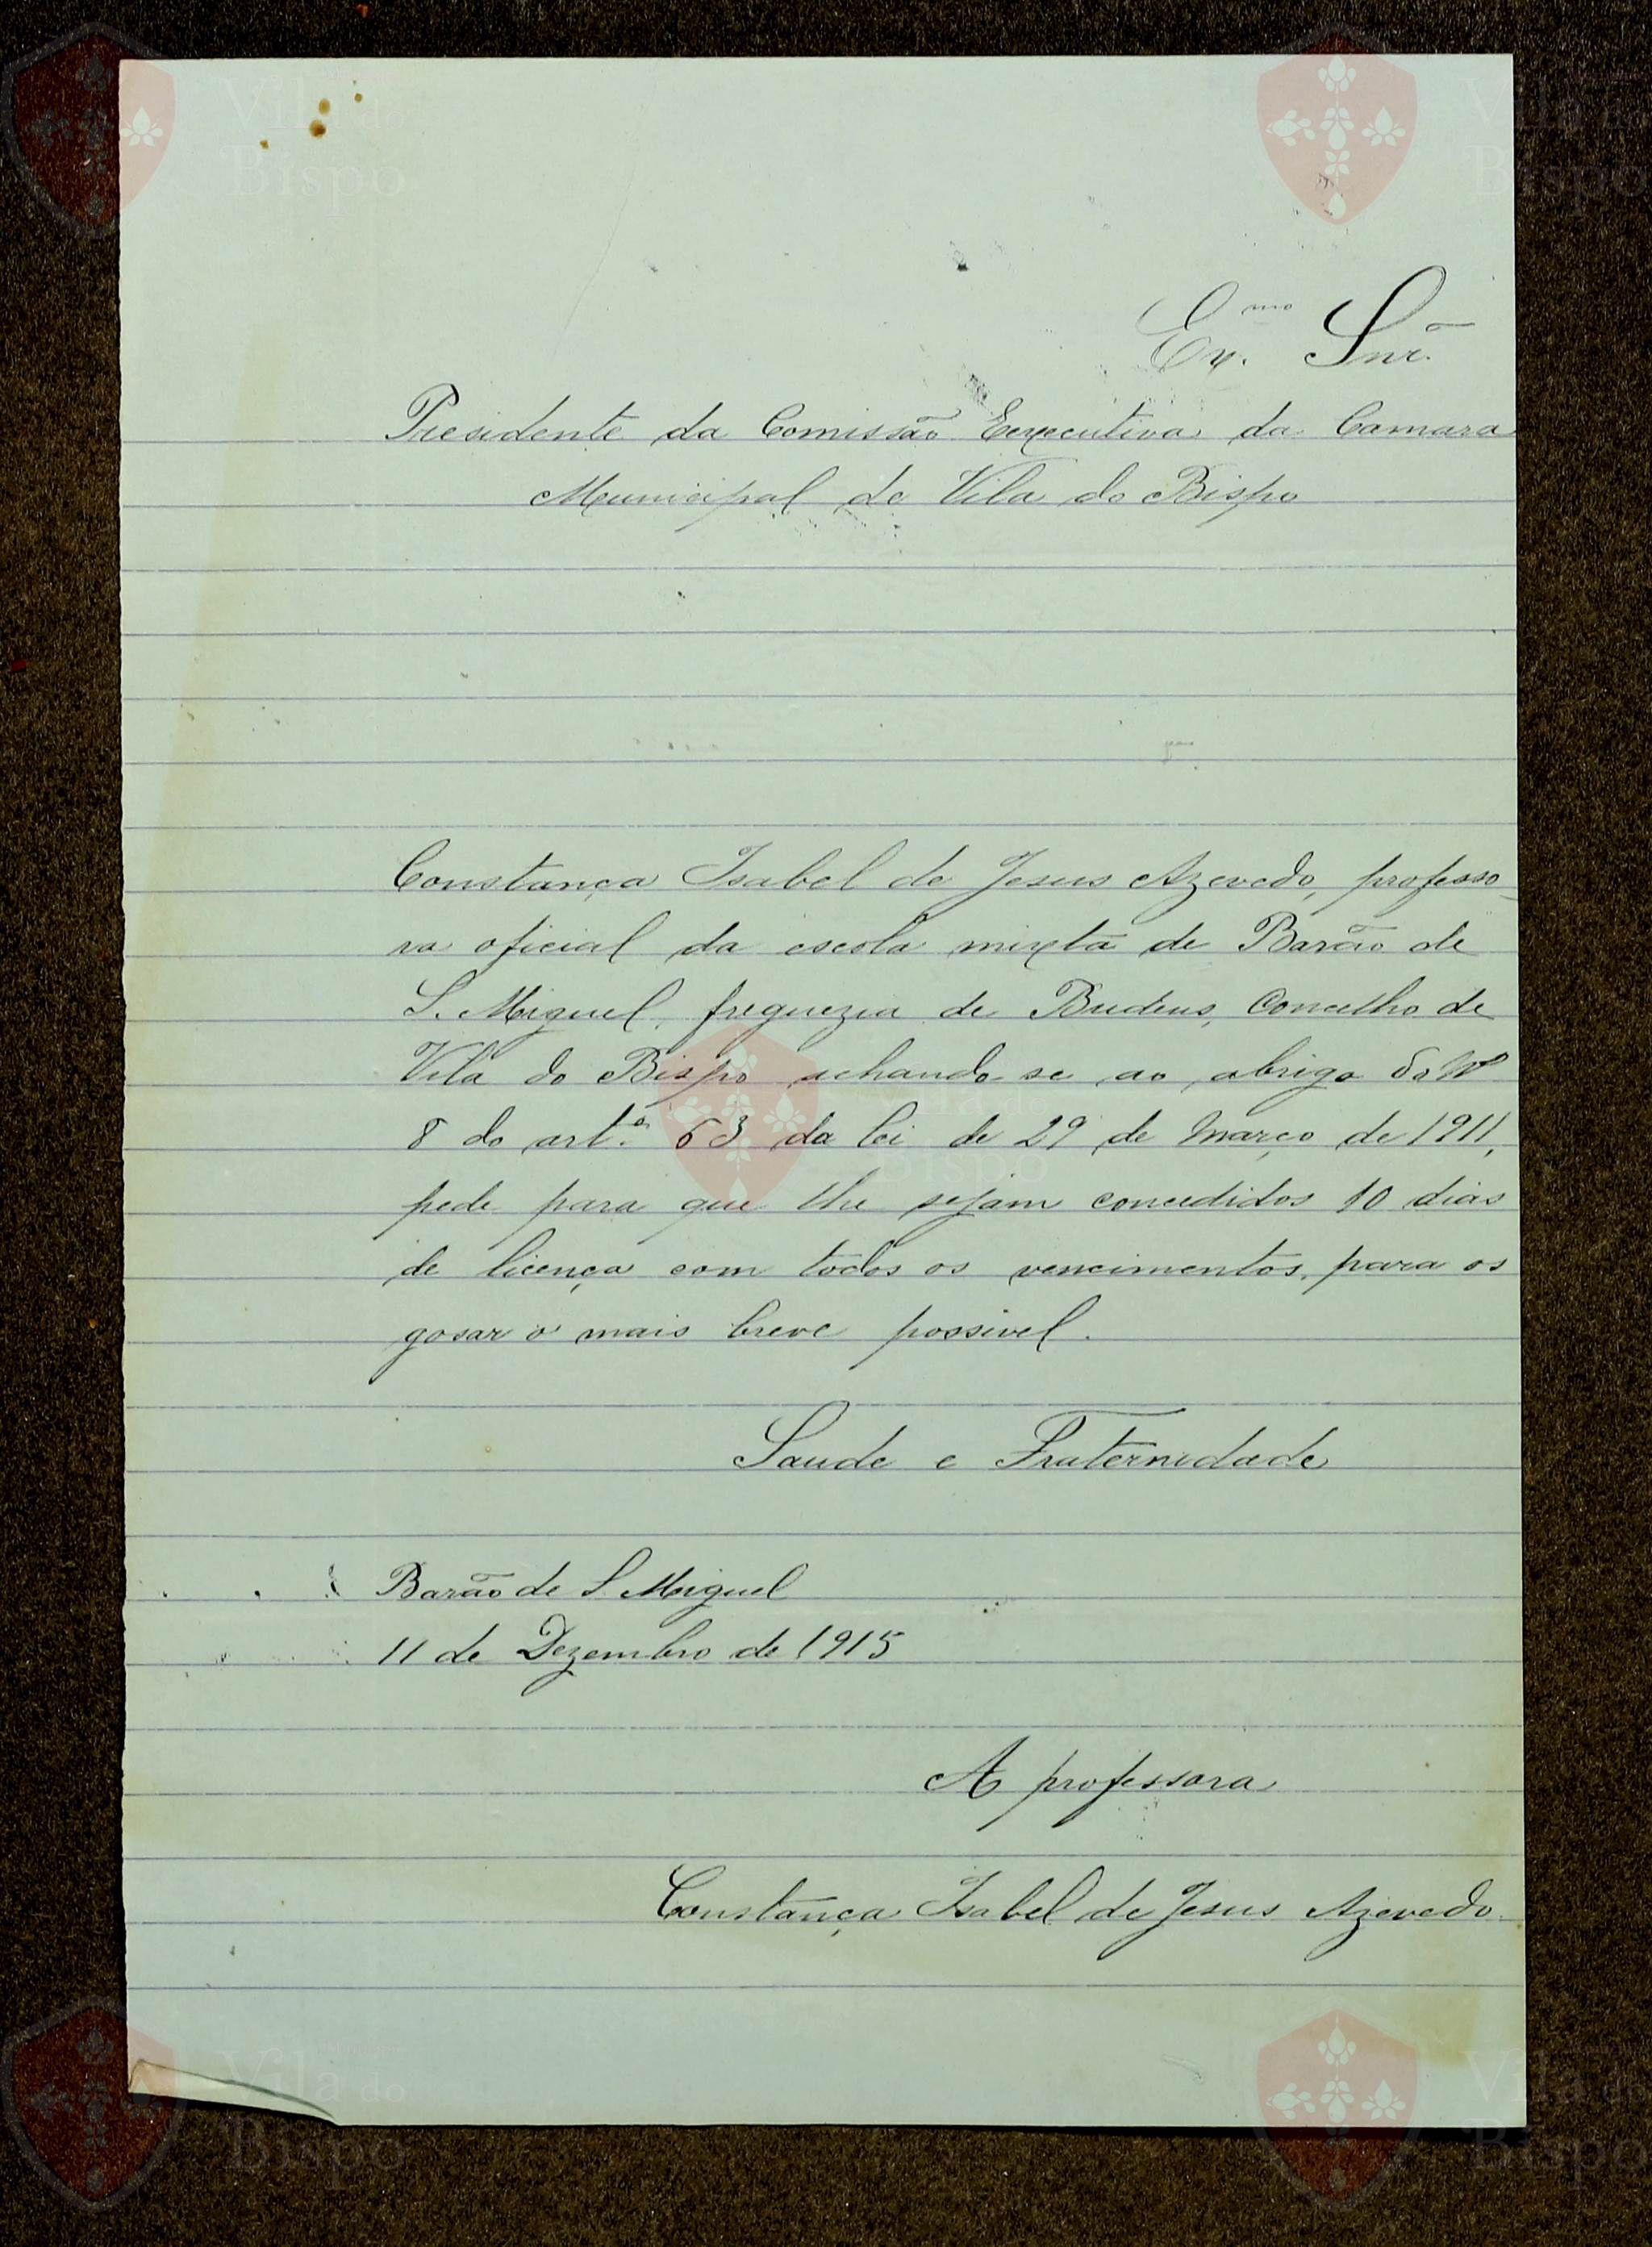 Ex.mo Snr.
Presidente da Comissão Eexecutiva da Camara
Municipal de Vila do Bispo
Constança Isabel de Jesus Azevedo, professo-
ra oficial da escola mixta de Barão de
S. Miguel, freguezia de Budens, Concelho de
Vila do Bispo achando-se ao abrigo do Nº
8 do artº. 63 da lei de 29 de Março de 1911,
pede para que lhe sejam concedidos 10 dias
de licença com todos os vencimentos, para os
gosar o mais breve possivel.
Saude e Fraternidade
Barão de S. Miguel
11 de Dezembro de 1915
A professora
Constança Isabel de Jesus Azevedo
Vila do
Bispo